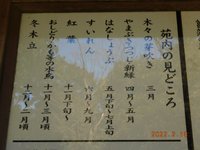 苑内の見どころ
木々の芽吹き 三月
やまぶき・つつじ・新緑 四月～五月
はなしょうぶ 五月下旬～七月上旬
すいれん 六月～九月
紅葉 十一月下旬～
おしどり・かも等の水鳥 十一月～三月頃
冬木立 十二月～二月
2022.2.1